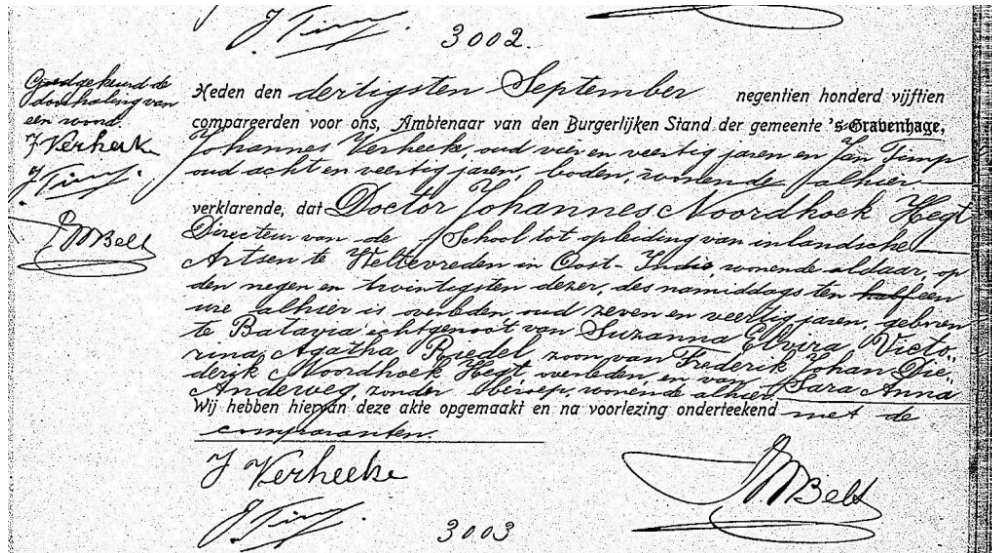 J Timp.
3002.
Goedgekeurd de
doorhaling van
een woord.
J Verheeke
J Timp.
Belt
Heden den dertigsten September negentien honderd vijftien
compareerden voor ons, Ambtenaar van den Burgerlijken Stand der gemeente 's-Gravenhage,
Johannes Verheeke, oud vier en veertig jaren en Jan Timp
oud acht en veertig jaren, boden, wonende alhier
verklarende, dat Doctor Johannes Noordhoek Hegt
Directeur van de School tot opleiding van inlandsche
Artsen te Weltevreden in Oost-Indië, wonende aldaar, op
den negen en twintigsten dezer, des namiddags ten half een
ure alhier is overleden oud zeven en veertig jaren, geboren
te Batavia echtgenoot van Suzanna Elvira Victo-
rina Agatha Riedel, zoon van Frederik Johan Die-
derik Noordhoek Hegt, overleden, en van Sara Anna
Anderweg, zonder beroep, wonende alhier.
Wij hebben hiervan deze akte opgemaakt en na voorlezing onderteekend met de
comparanten.
J Verheeke
Belt
J Timp.
3003